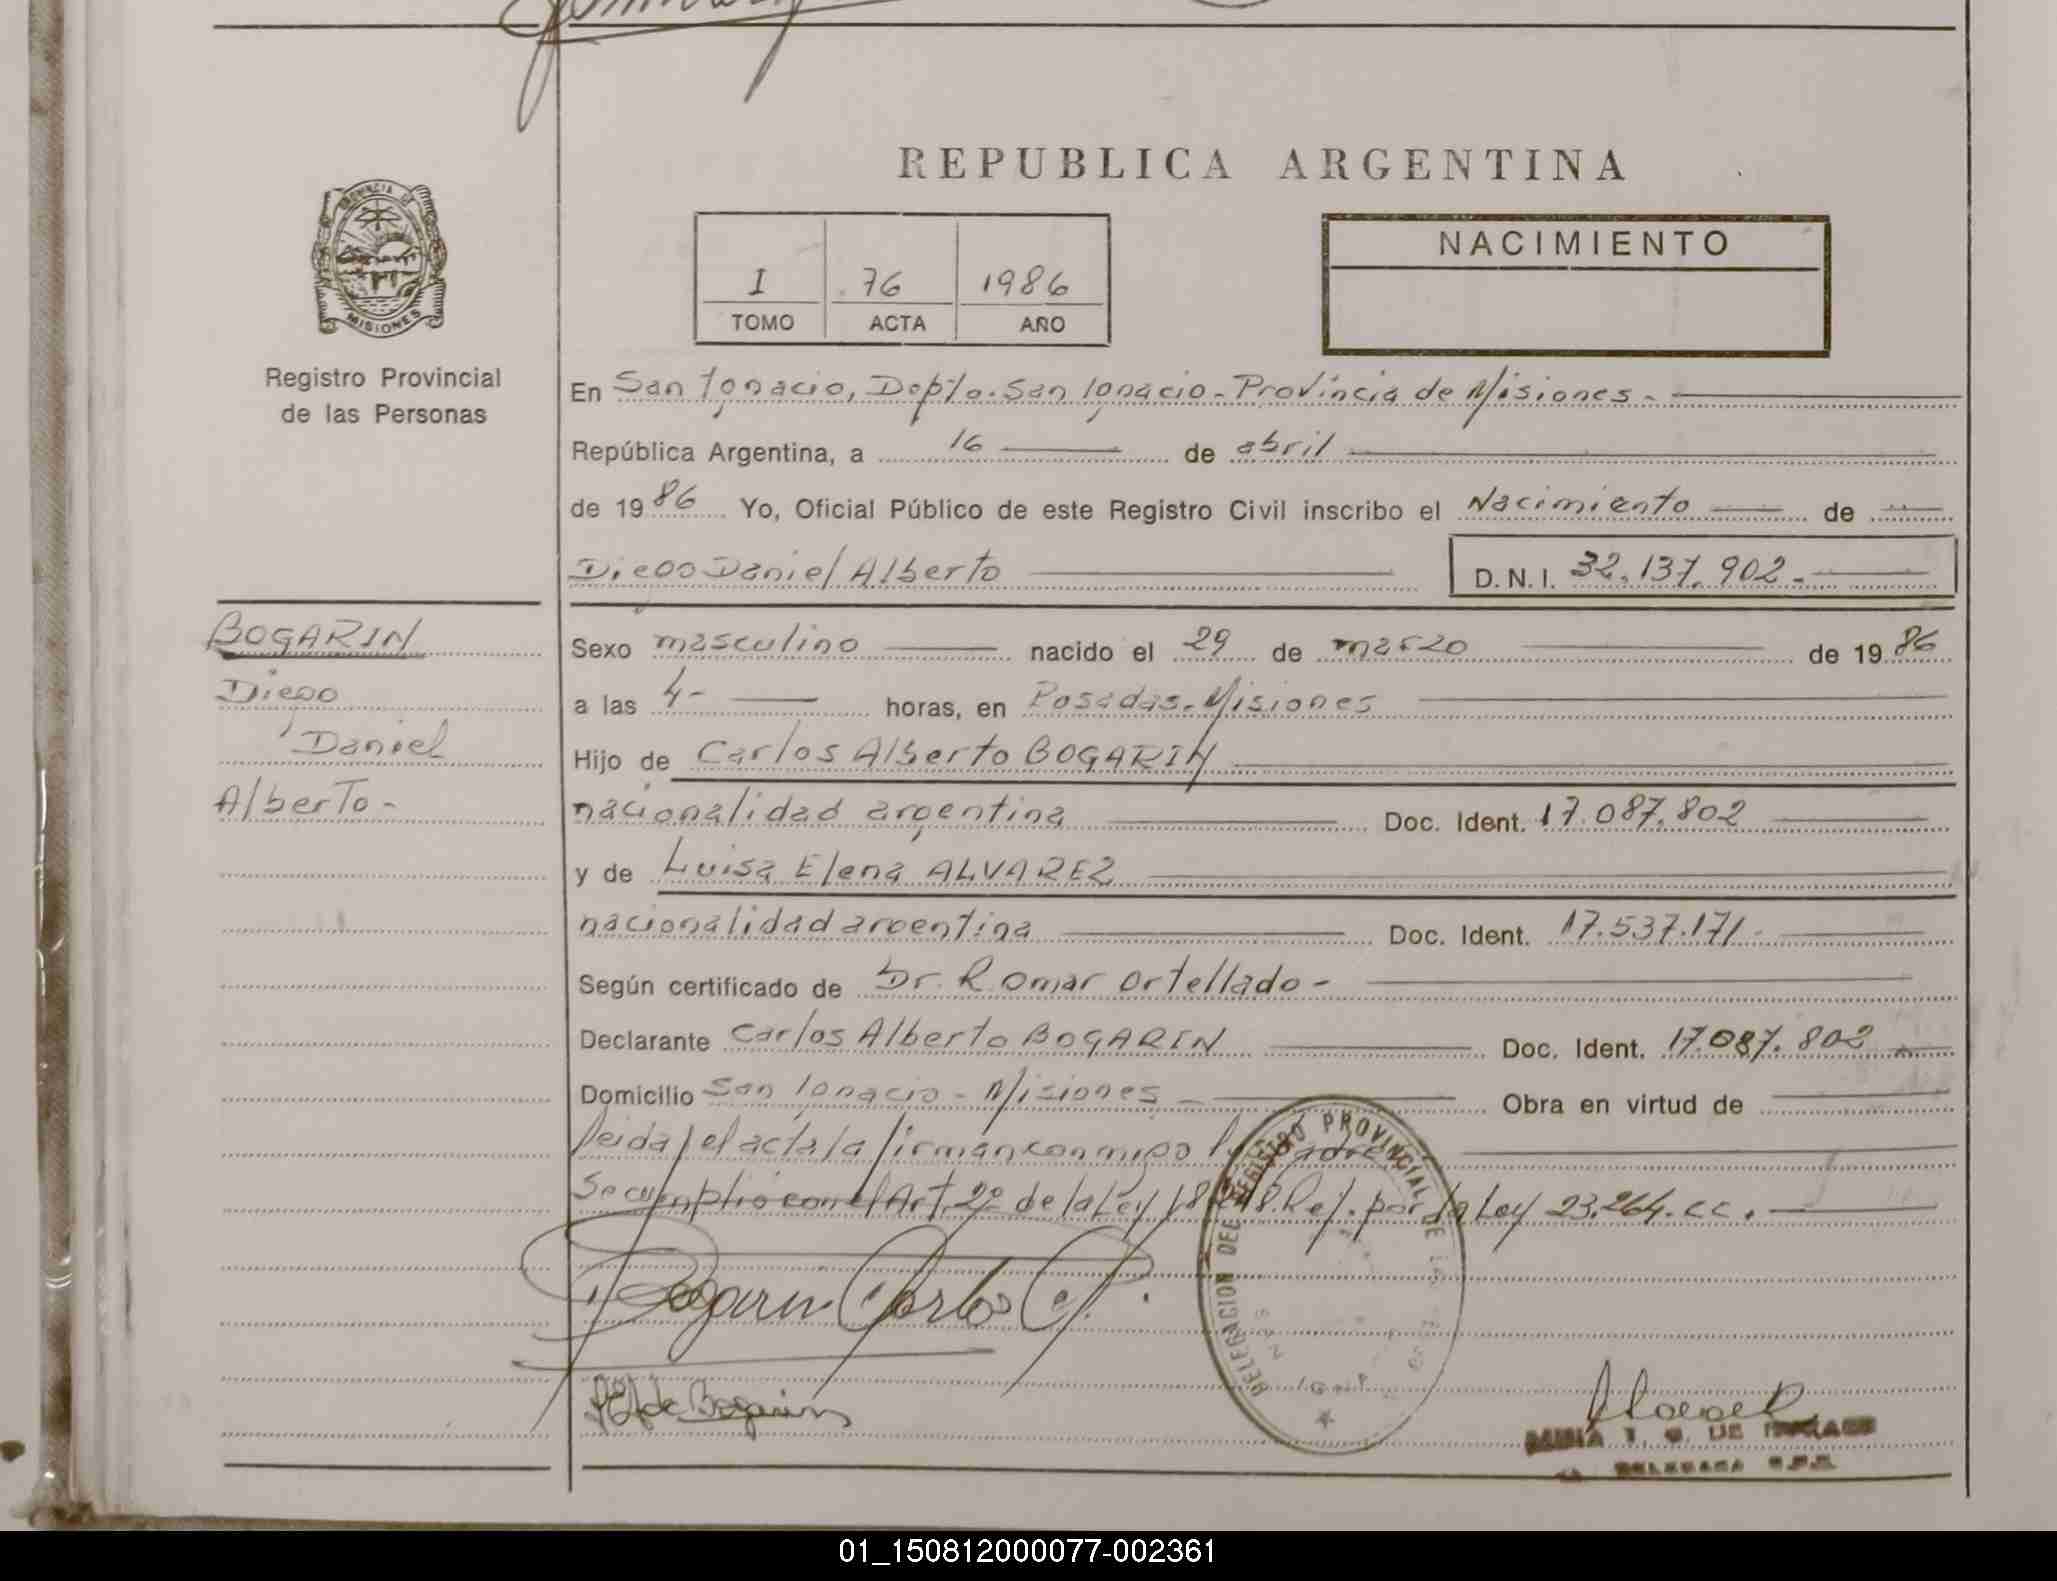 REPUBLICA ARGENTINA
PROVINCIA DE MISIONES
Registro Provincial
de las Personas
I 76 1986
TOMO ACTA AÑO
NACIMIENTO
En San Ignacio, Depto. San Ignacio - Provincia de Misiones -
República Argentina, a 16 de abril
de 1986 Yo, Oficial Público de este Registro Civil inscribo el Nacimiento de
Diego Daniel Alberto D.N.I. 32.137.902 -
BOGARIN
Diego
Daniel
Alberto -
Sexo masculino nacido el 29 de marzo de 1986
a las 4- horas, en Posadas - Misiones
Hijo de Carlos Alberto BOGARIN
nacionalidad argentina Doc. Ident. 17.087.802
y de Luisa Elena ALVAREZ
nacionalidad argentina Doc. Ident. 17.537.171 -
Según certificado de Dr. R Omar Ortellado -
Declarante Carlos Alberto BOGARIN Doc. Ident. 17.087.802
Domicilio San Ignacio - Misiones - Obra en virtud de
leida el acta la firman conmigo
Se cumplió con el Art. 2º de la Ley Ref. por la Ley 23.264. cc.
DELEGACION DEL REGISTRO PROVINCIAL DE
Bogarin Carlos A.
de Bogarin
01_150812000077-002361